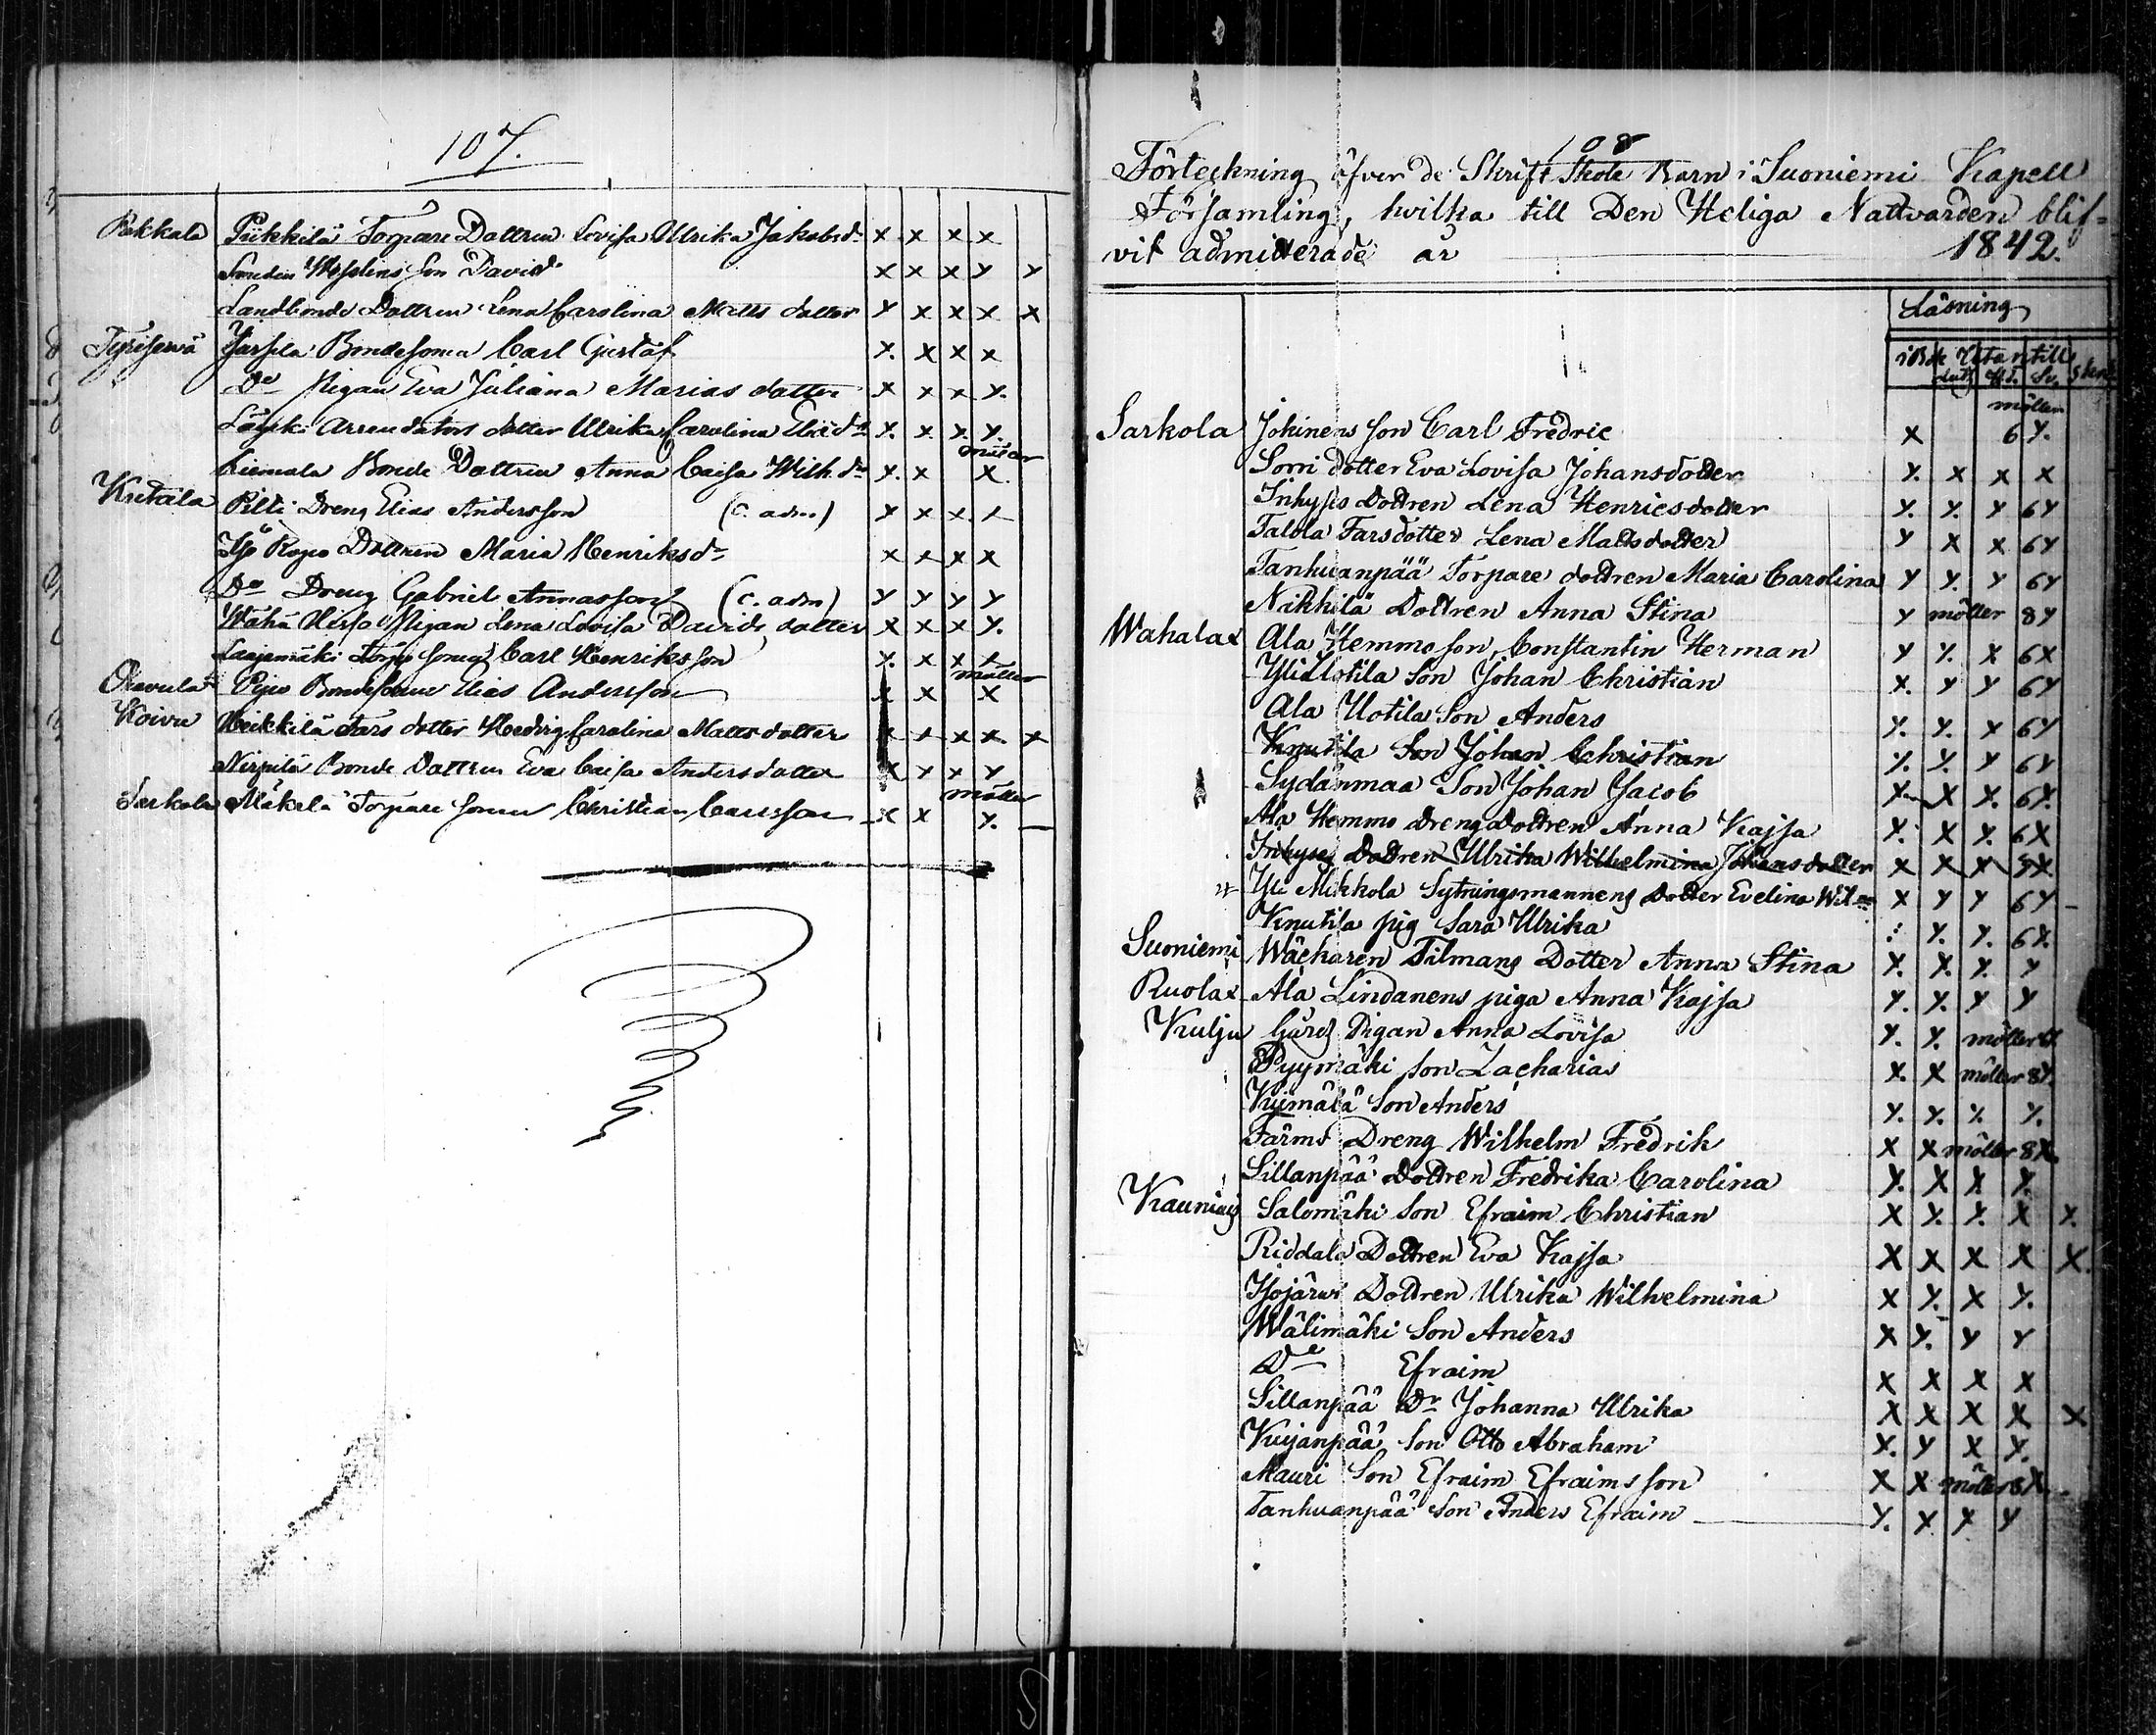 107.
Pakkala Piikkilä Torpare Dottren Lovisa Ulrika Jakobsd. x x x x
Smeden Son David x x x x x
Landbonde Dottren Lena Carolina Matts dotter x x x x x
Järfila Bondesonen Carl Gustaf x x x x
Do Pigan Eva Juliana Marias dotter x x x x
Arrendators dotter Ulrika Carolina x x x x
Bonde Dottren Anna Caisa Wilh. dr x x x
Pilli Dreng Elias Andersson (C. adm) x x x x
Dottren Maria Henriksdr x x x x
Do Dreng Gabriel Annasson (C. adm) x x x x
Wähä Pigan Lena Lovisa Davids dotter x x x x
Laajamäki Carl Henriksson x x x x
möller
Bondesonen Elias Andersson x x x
Koivu Heikkilä Fars dotter Hedvig Carolina Mattsdotter x x x x x
Bonde Dottren Eva Caisa Andersdotter x x x x
möller
Sarkola Mäkelä Torpare Sonen Christian Carlsson x x x
108
Förteckning öfver de Skrift Skole Barn i Suoniemi Kapell
Församling, hvilka till Den Heliga Nattvarden blif=
vit admitterade år 1842.
Läsning
i Bok Utan till
möller
Sarkola Johinens son Carl Fredric x 6 x
Sorri dotter Eva Lovisa Johansdotter x x x x
Inhyses Dottren Lena Henricsdotter x x x 6x
Talola Farsdotter Lena Mattsdotter x x x 6x
Tanhuanpää Torpare dottren Maria Carolina x x x 6x
Nikkilä Dottren Anna Stina x möller 8x
Wahalax Ala Hemmo son Constantin Herman x x x 6x
Yli Uotila Son Johan Christian x x x 6x
Ala Uotila Son Anders x x x 6x
Knutila Son Johan Christian x x x 6x
Sydänmaa Son Johan Jacob x x x 6x
Ala Hemmo Dreng Dottren Anna Kajsa x x x 6x
Inhyses Dottren Ulrika Wilhelmina Johansdotter x x x x
Yli Mikkola Sytningsmannens Dotter Evelina x x x 6x
Knutila pig Sara Ulrika x x 6x
Suoniemi Wäckaren Tilmans Dotter Anna Stina x x x x
Ruolax Ala Lindanens piga Anna Kajsa x x x x
Kulju Gårds Pigan Anna Lovisa x x möller
Pyymäki son Zacharias x x möller 8x
Kujmälä Son Anders x x x x
Dreng Wilhelm Fredrik x x möller 8x
Sillanpää Dottren Fredrika Carolina x x x x
Kauniais Salomäki Son Efraim Christian x x x x x
Riddala Dottren Eva Kajsa x x x x x
Isojärwi Dottren Ulrika Wilhelmina x x x x
Wälimäki Son Anders x x x x
Do Efraim x x x x
Sillanpää Dr Johanna Ulrika x x x x x
Kujanpää Son Otto Abraham x x x x
Mauri Son Efraim Efraimsson x x möller 8x
Tanhuanpää Son Anders Efraim x x x x